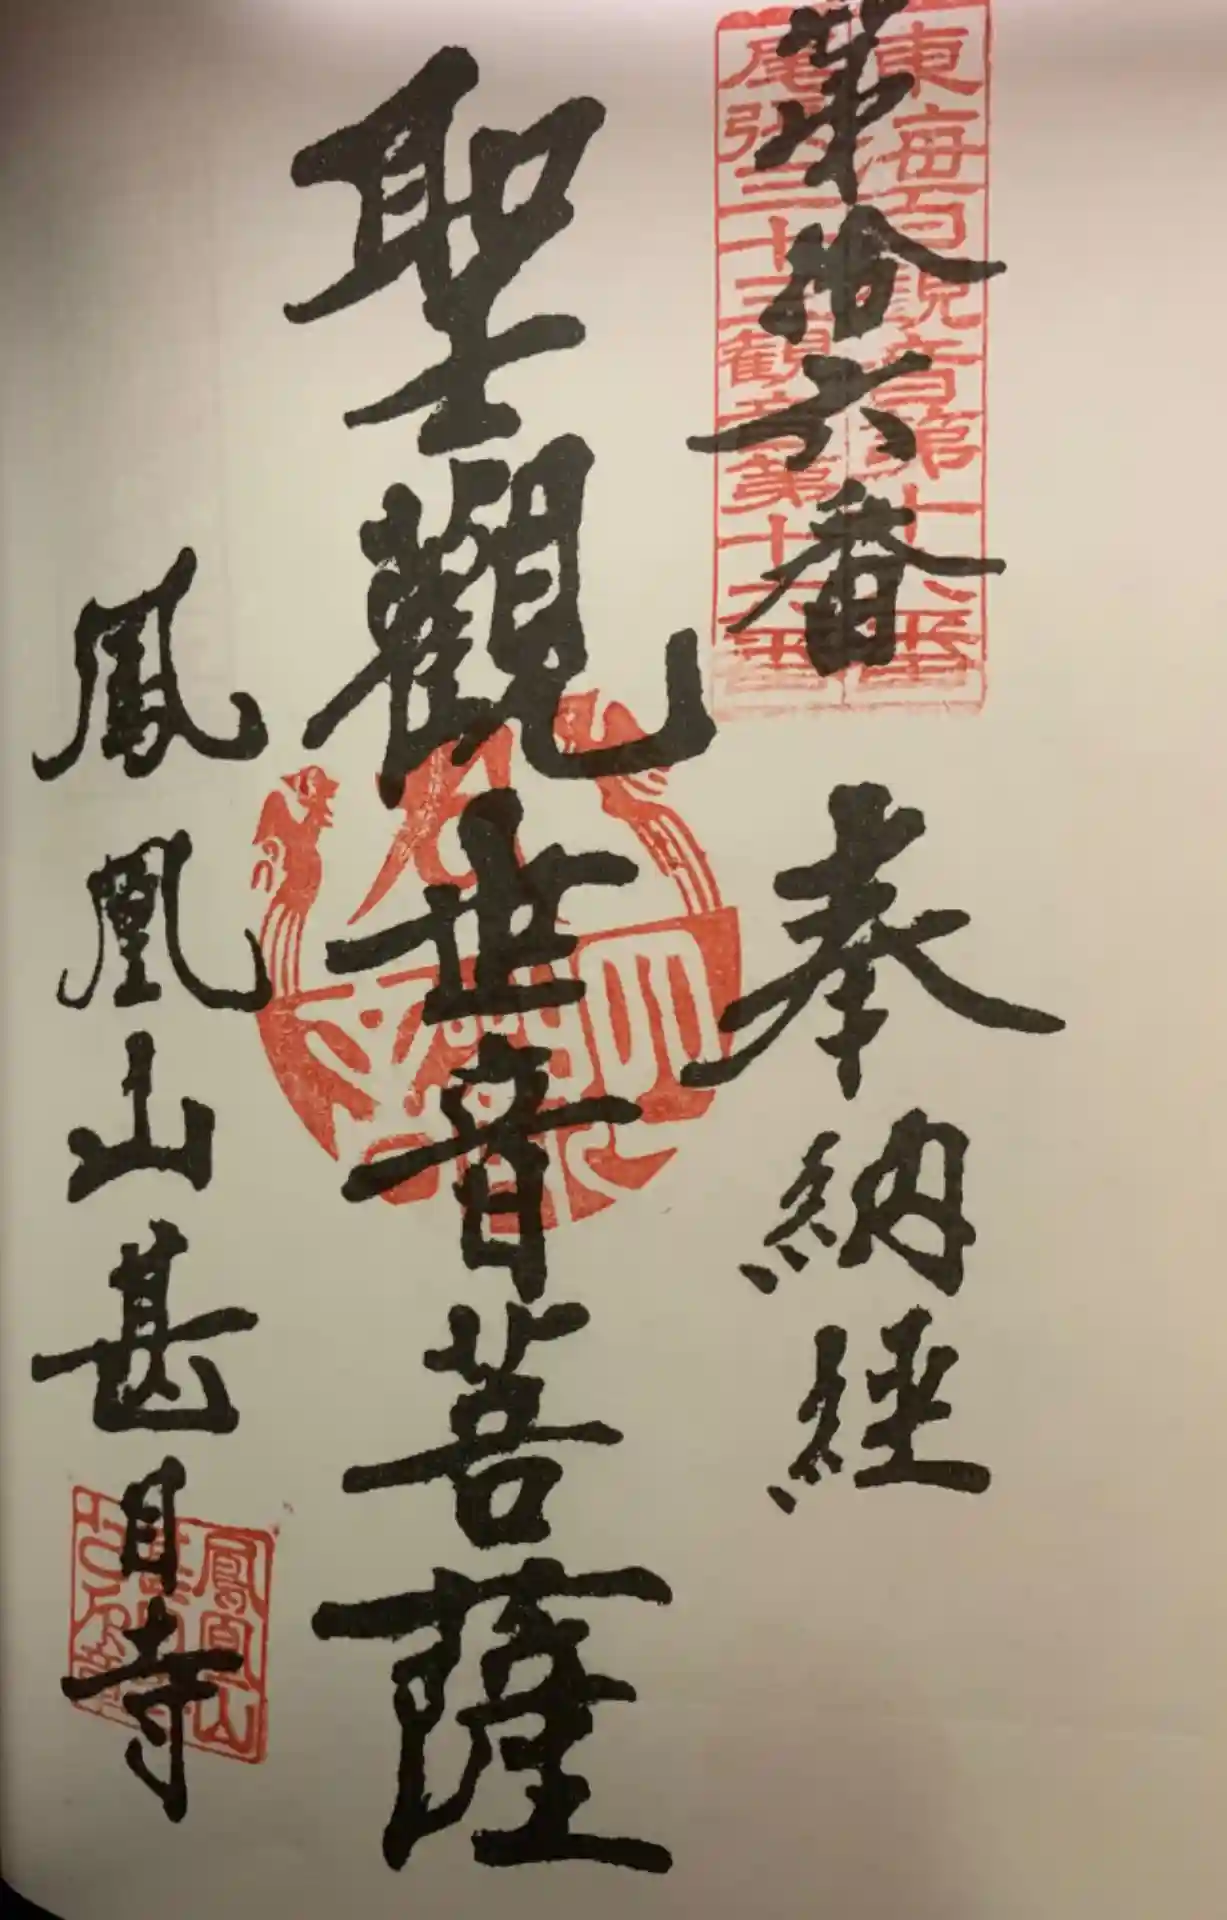 東海百観音第十六番
尾張三十三観音第十六番
第拾六番
奉納経
聖觀世音菩薩
鳳凰山甚目寺
鳳凰山